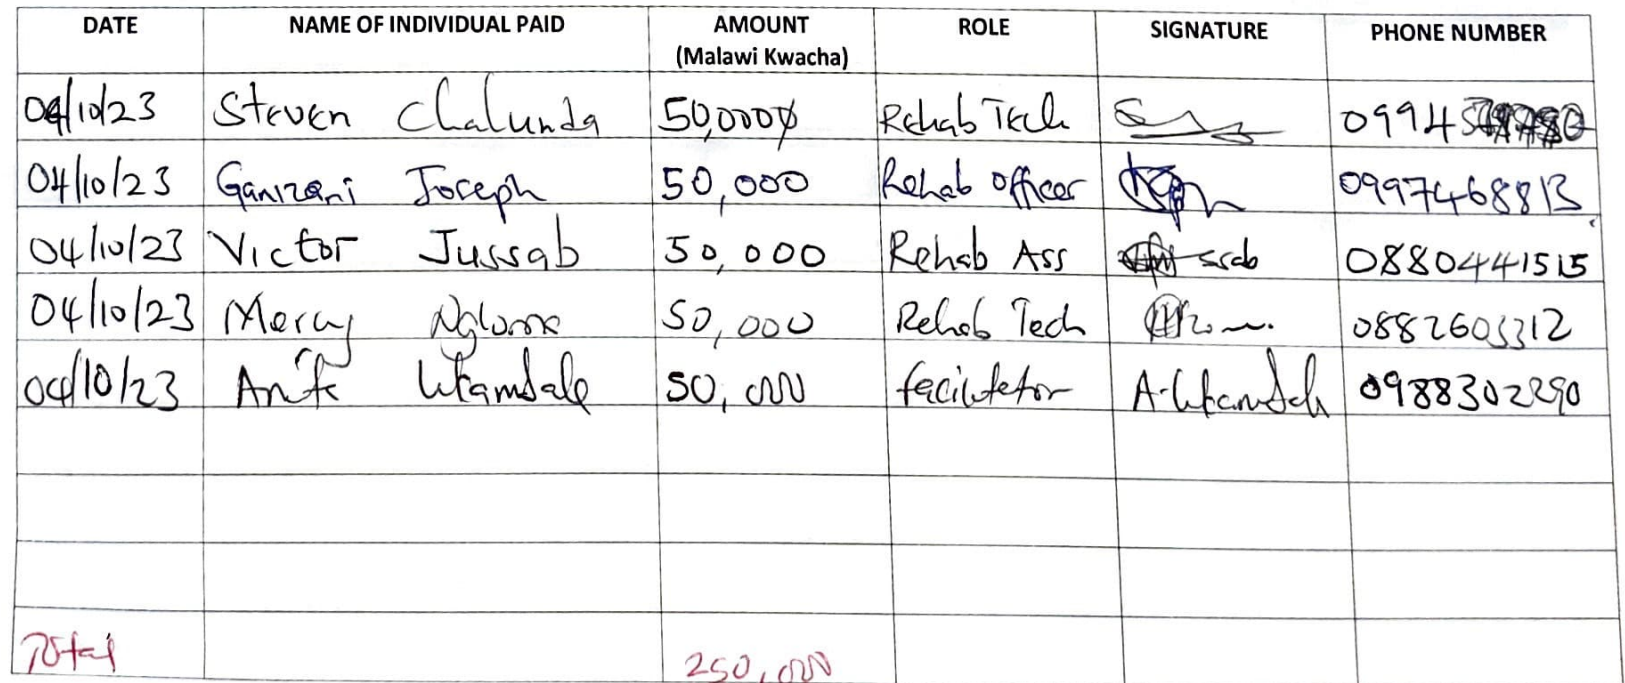 DATE NAME OF INDIVIDUAL PAID AMOUNT ROLE SIGNATURE PHONE NUMBER
(Malawi Kwacha)
04/10/23 Steven Chalunda 50,000 Rehab Tech 0994
04/10/23 Ganizani Joseph 50,000 Rehab Officer 0997468813
04/10/23 Victor Jussab 50,000 Rehab Ass ssab 0880441515
04/10/23 Mercy 50,000 Rehab Tech 0882603312
04/10/23 50,000 facilitator 0988302290
Total 250,000